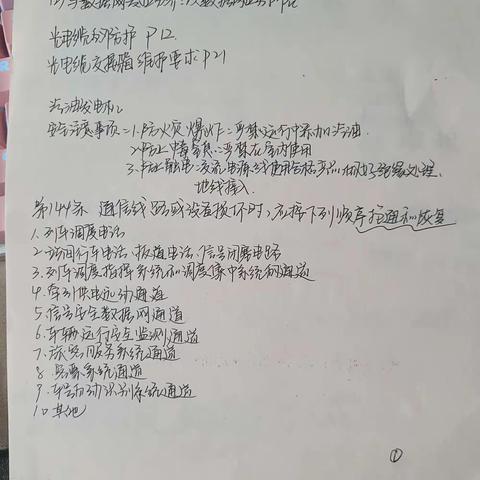 光电缆的防护 P12
光电缆交接箱维护要求 P21
汽油发电机
安全注意事项=1.防火灾爆炸=严禁运行中添加汽油
2.防止中毒窒息=严禁在室内使用
3.防止静电
地线接入.
第144条 通信线路或设备损坏时,应按下列顺序抢通和恢复
1.列车调度电话
2.站间行车电话、扳道电话、信号闭塞电路
3.列车调度指挥系统和调度集中系统的通道
4.牵引供电远动通道
5.信号安全数据网通道
6.车辆运行安全监测通道
7.旅客服务系统通道
8.客票系统通道
9.车号自动识别系统通道
10.其他
①